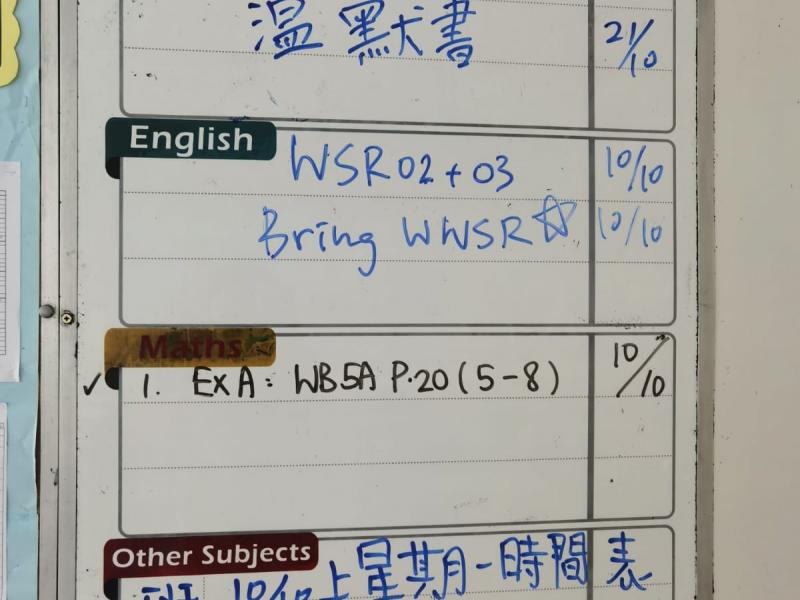 溫默書 21/10
English
WSR 02 + 03 10/10
Bring WWSR☆ 10/10
Maths
✓ 1. Ex A: WB5A P.20 (5-8) 10/10
Other Subjects
上星期一時間表